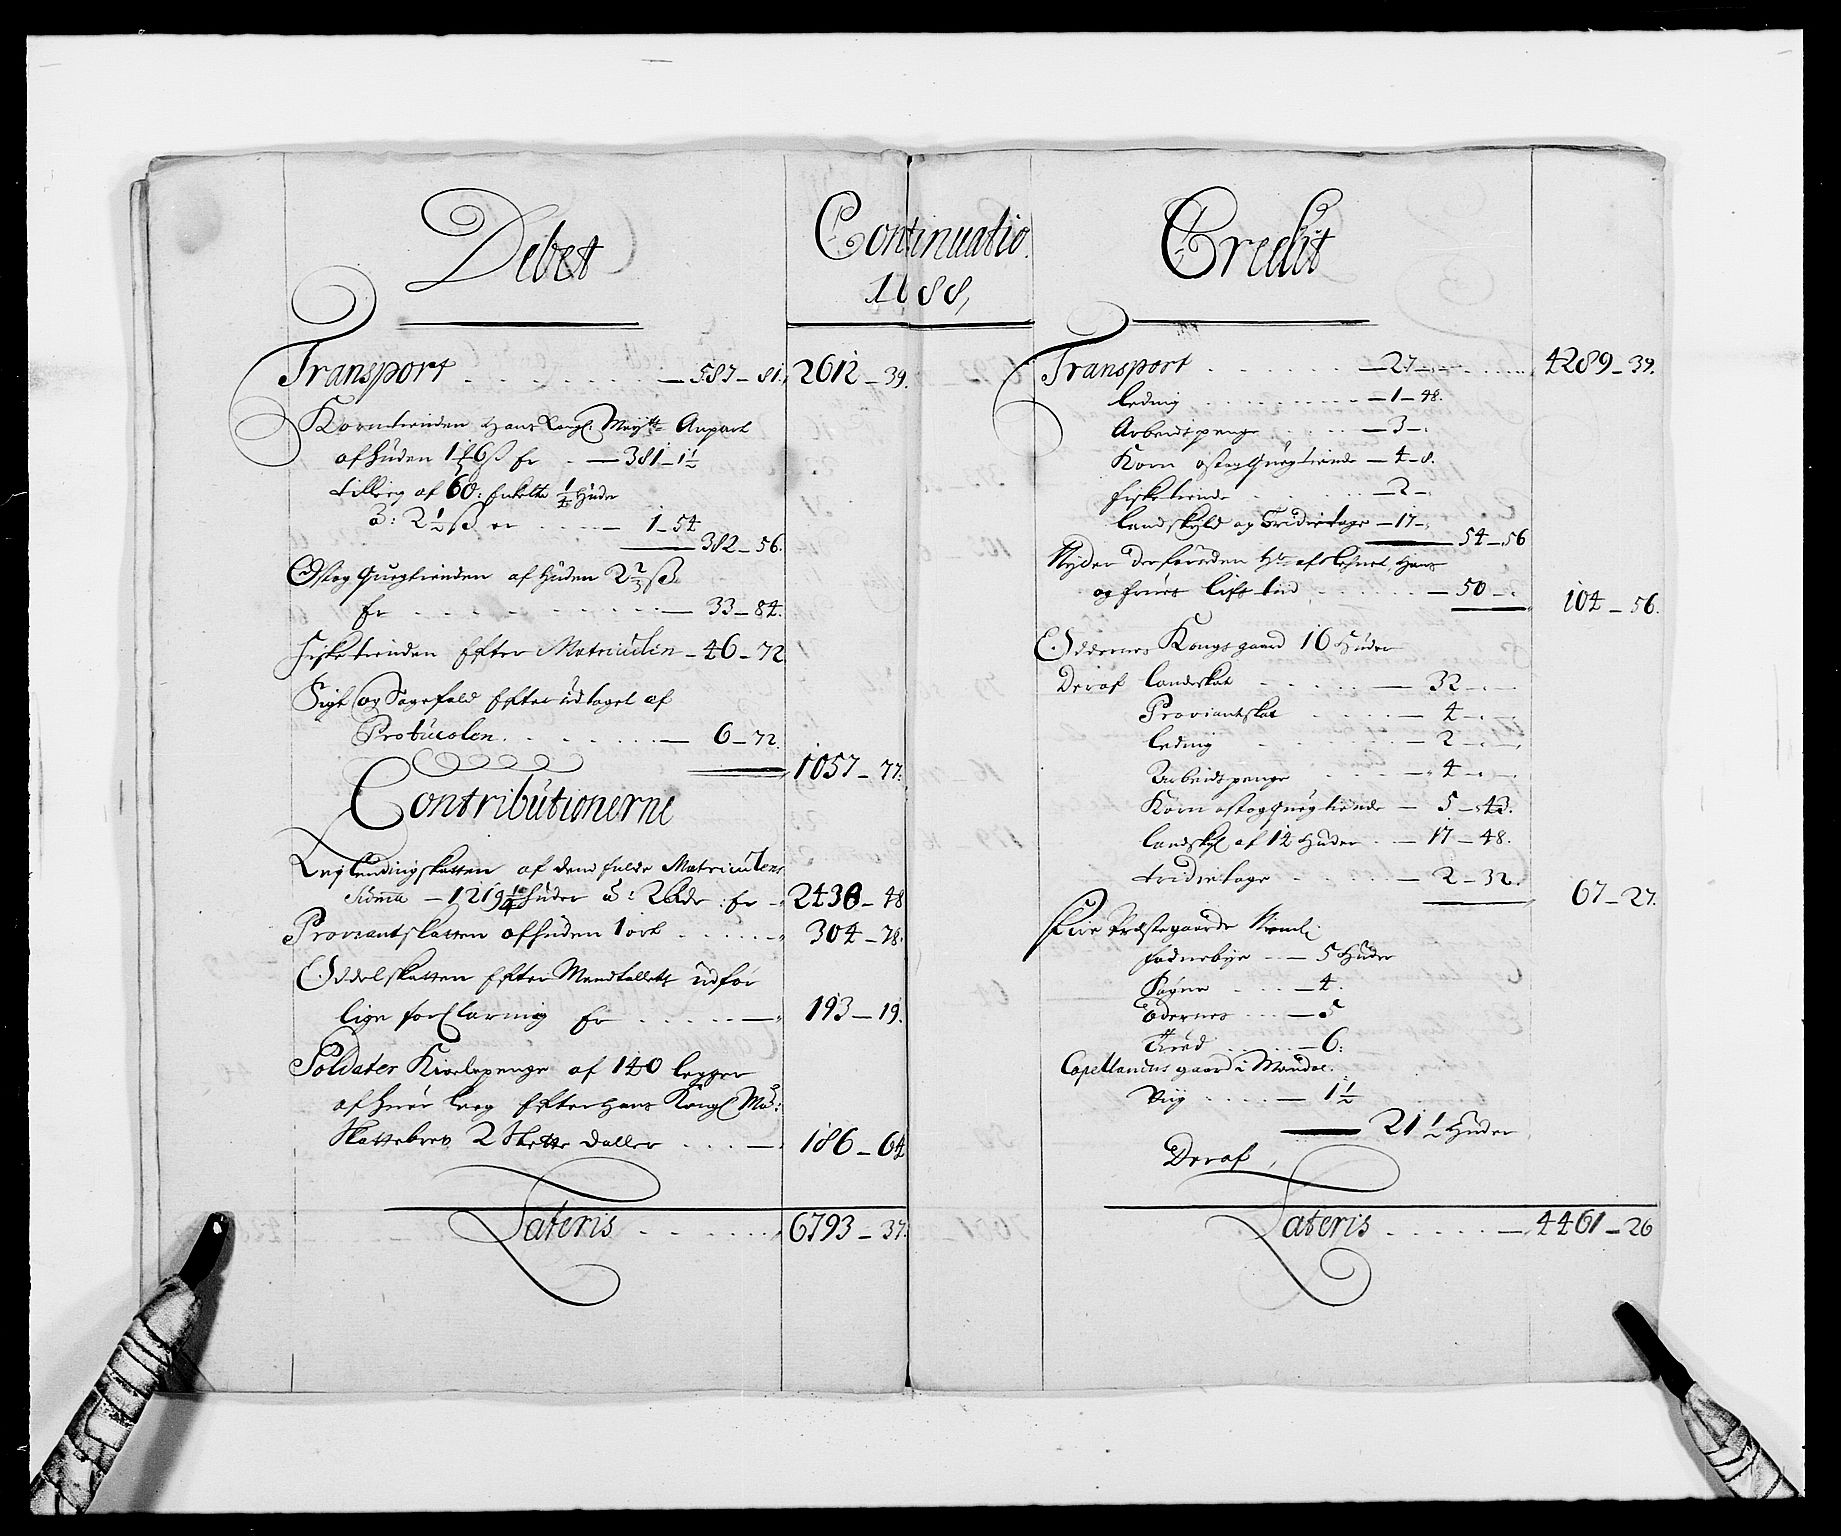 Debet
Continuatio
1688,
Transport — 587 – 81. 2612 – 39.
Korntienden Hans Kongl: Maytts Anpart
af huden 1 ß er — 381 – 1½
tillæg af 60: Enkelte ¼ huder
à: 2½ ß er — 1 – 54
382 – 56.
Ost og Quegtienden af huden 2⅔ ß
Er — 33 – 84.
Fiske tienden Effter Matriculen – 46 – 72
Sigt og Sagefald Effter udtaget af
Protucolen — 6 – 72.
1057 – 77.
Contributionerne
Leylendingskatten af dend fulde Matriculens
Suma – 1219 huder à: 2 er 2438 – 48
Proviantskatten af huden 1 ort 304 – 78.
Oddelskatten Effter Mandtallets udfør
lige forClaring Er 193 – 19.
Soldater Kiolepenge af 140 legger
af huer læg Effter Hans Kongl Ma:
Skattebrev 2 Slette daller 186 – 64
Lateris 6793 – 37.
Credit
Transport — 27 – 4289 – 39.
leding — 1 – 48.
Arbeidspenge — 3 –
Korn ost og Quegtiende — 4 – 8.
fiske tiende — 2 –
landskyld og Tridietage — 17 –
54 – 56
Nyder derforuden Hr. af lehnet, Hans
og frues lifs tid — 50 –
104 – 56.
Oddernes Kongsgaard 16 Huder
Deraf landskat — 32 –
Proviantskat — 4 –
leding — 2 –
Arbeidspenge — 4 –
Korn ost og Quegtiende — 5 – 43.
landskyl af 12 Huder — 17 – 48.
tridietage — 2 – 32.
67 – 27.
Fire Præstegaarde Neml:
fodnebye — 5 Huder
Søgne — 4.
Odernes — 5
— 6:
Capellanens gaard i Mandal.
Viig — 1½
21½ Huder
Deraf,
Lateris — 4461 – 26